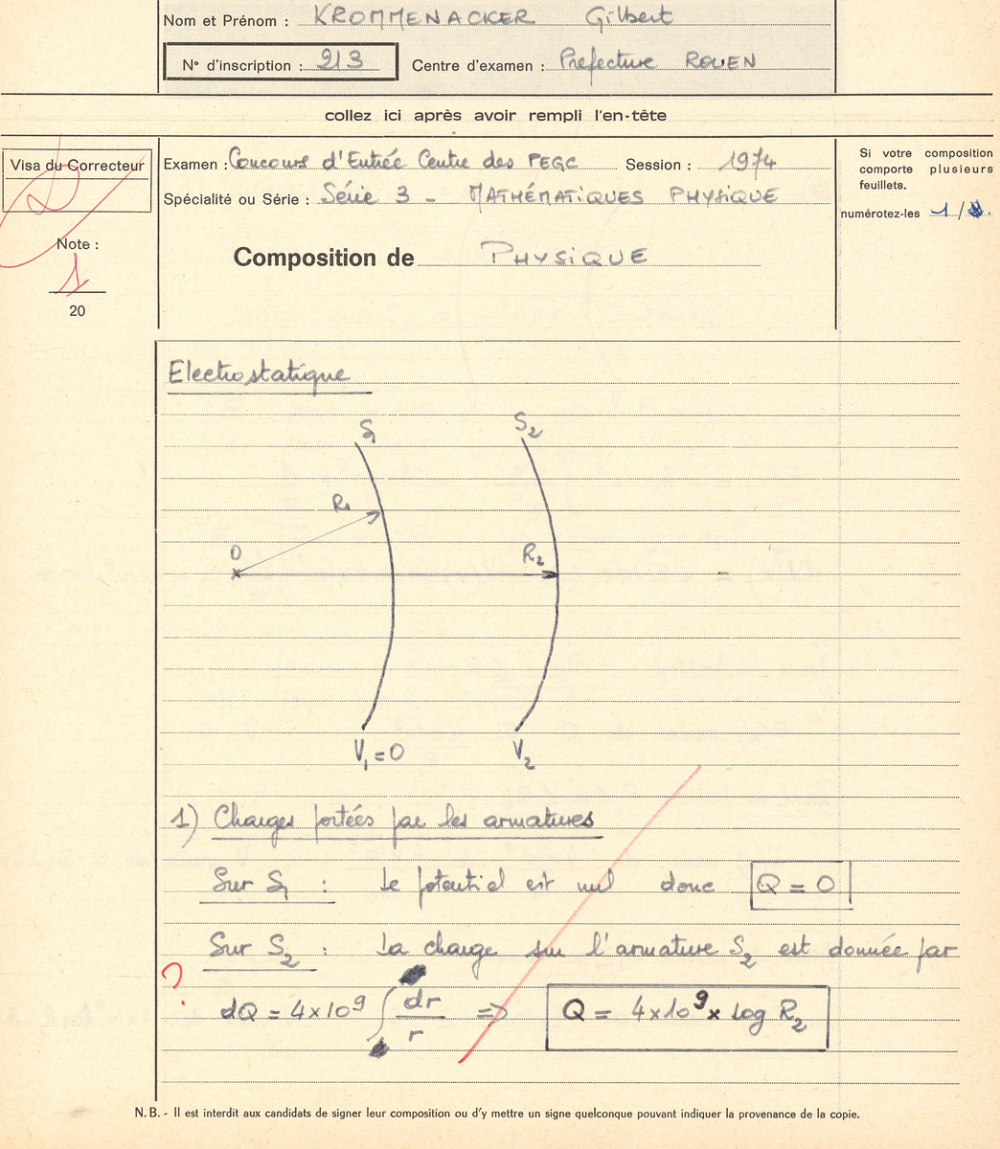 Nom et Prénom : KROMMENACKER Gilbert
N° d'inscription : 213 Centre d'examen : Préfecture ROUEN
collez ici après avoir rempli l'en-tête
Visa du Correcteur
Examen : Concours d'Entrée Centre des PEGC Session : 1974
Spécialité ou Série : Série 3 - MATHÉMATIQUES PHYSIQUE
Si votre composition
comporte plusieurs
feuillets.
numérotez-les 1/
Note :
1
20
Composition de PHYSIQUE
Electrostatique
S1 S2
R1
O R2
V1=0 V2
1) Charges portées par les armatures
Sur S1 : le potentiel est nul donc Q = 0
Sur S2 : La charge sur l'armature S2 est donnée par
?
dQ = 4x10^9 ∫ dr/r => Q = 4x10^9 x Log R2
N.B. - Il est interdit aux candidats de signer leur composition ou d'y mettre un signe quelconque pouvant indiquer la provenance de la copie.